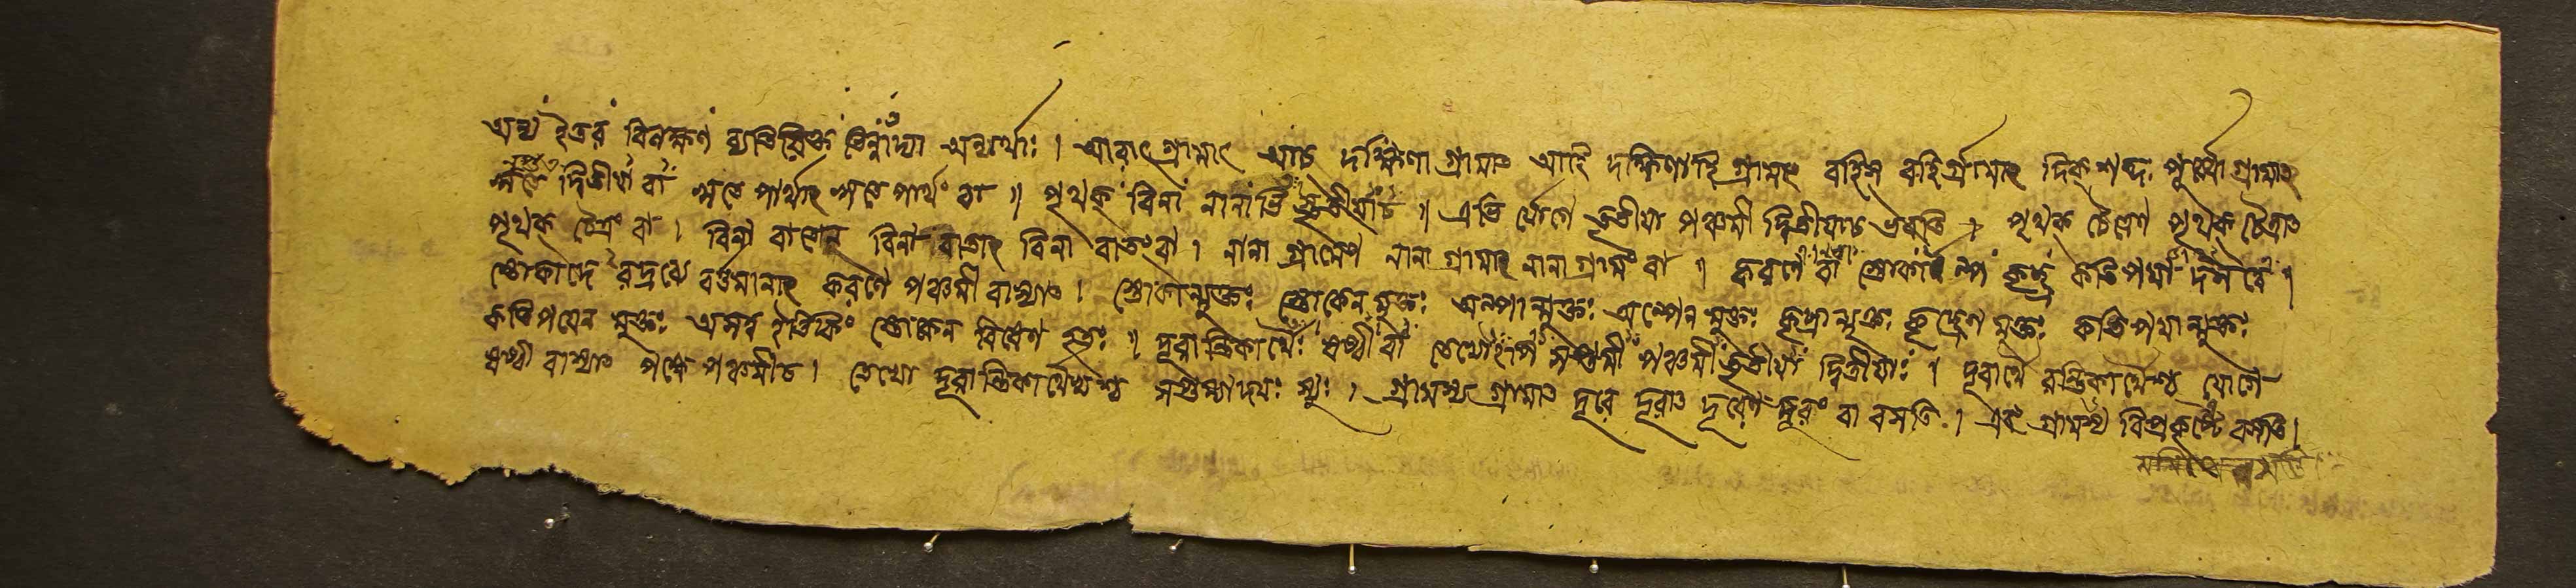 অন্য ইতর বিলক্ষণ ব্যতিরিক্ত ভিন্নাদ্যা অন্যার্থাঃ । আরাৎ গ্রামাৎ আচ দক্ষিণা গ্রামাৎ আহি দক্ষিণাহি গ্রামাৎ বহিস্ বহির্গ্রামাৎ দিক্শব্দ পূর্ব্বো গ্রামাৎ
ঋতে দ্বিতীয়া বা ঋতে পার্থাৎ ঋতে পার্থং বা ॥ পৃথক্ বিনা নানাভি স্তৃতীয়াচ ॥ এভি র্যোগে তৃতীয়া পঞ্চমী দ্বিতীয়াচ ভবতি । পৃথক্ চৈত্রেণ পৃথক্ চৈত্রাৎ
পৃথক্ চৈত্রং বা । বিনা বাতেন বিনা বাতাৎ বিনা বাতং বা । নানা গ্রামেণ নানা গ্রামাৎ নানা গ্রামং বা ॥ করণে বা স্তোকাল্প কৃচ্ছ্র কতিপয়া দসত্ত্বে ।
স্তোকাদে রদ্রব্যে বর্ত্তমানাৎ করণে পঞ্চমী বাস্যাৎ । স্তোকান্মুক্তঃ স্তোকেন মুক্তঃ অল্পান্মুক্তঃ অল্পেন মুক্তঃ কৃচ্ছ্রান্মুক্তঃ কৃচ্ছ্রেণ মুক্তঃ কতিপয়ান্মুক্তঃ
কতিপয়েন মুক্তঃ অসত্ত্ব ইতি কিং স্তোকেন বিষেণ হতঃ ॥ দূরান্তিকার্থৈঃ ষষ্ঠী বা তেভ্যোঽপি সপ্তমী পঞ্চমী তৃতীয়া দ্বিতীয়াঃ । দূরার্থৈ রন্তিকার্থৈশ্চ যোগে
ষষ্ঠী বাস্যাৎ পক্ষে পঞ্চমীচ । তেভ্যো দূরান্তিকার্থেভ্যশ্চ সপ্তম্যাদয়ঃ স্যুঃ । গ্রামস্য গ্রামাৎ দূরে দূরাৎ দূরেণ দূরং বা বসতি । এবং গ্রামস্য বিপ্রকৃষ্টে বসতি ।